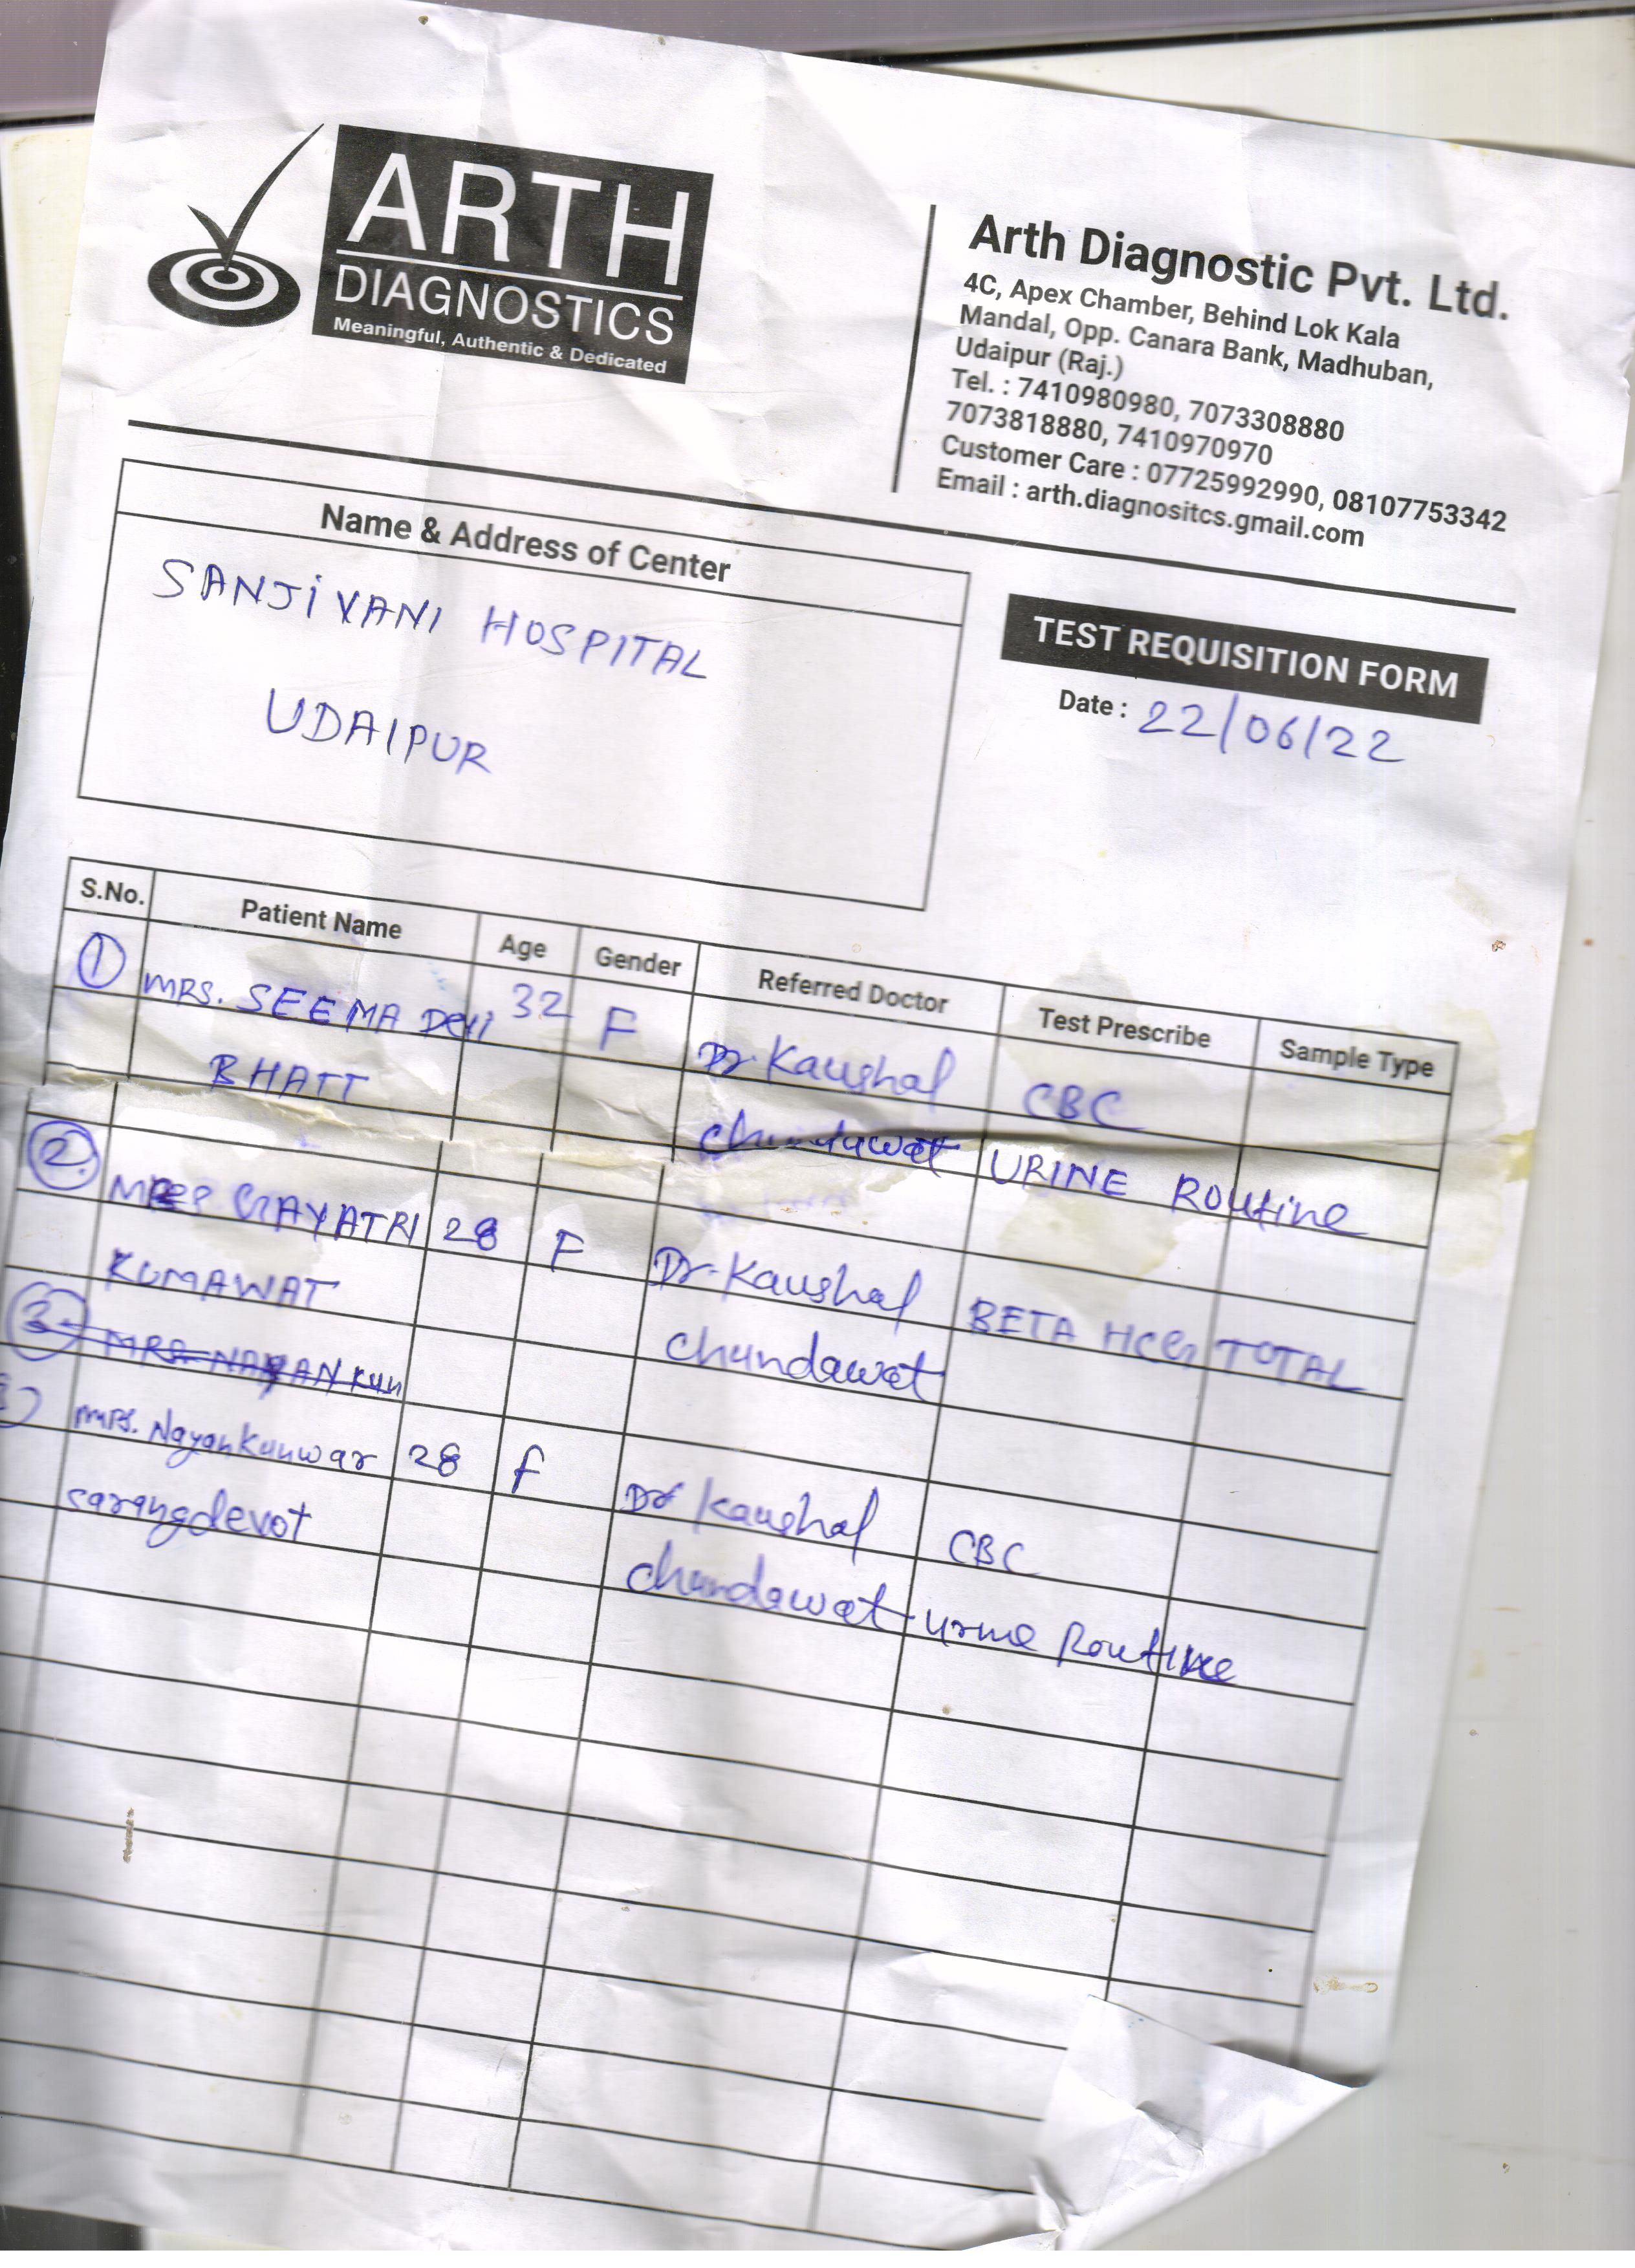 ARTH
DIAGNOSTICS
Meaningful, Authentic & Dedicated
Arth Diagnostic Pvt. Ltd.
4C, Apex Chamber, Behind Lok Kala
Mandal, Opp. Canara Bank, Madhuban,
Udaipur (Raj.)
Tel. : 7410980980, 7073308880
7073818880, 7410970970
Customer Care : 07725992990, 08107753342
Email : arth.diagnositcs.gmail.com
Name & Address of Center
SANJIVANI HOSPITAL
UDAIPUR
TEST REQUISITION FORM
Date : 22/06/22
S.No. Patient Name Age Gender Referred Doctor Test Prescribe Sample Type
1 MRS. SEEMA Devi 32 F Dr. Kaushal CBC
BHATT Chundawat URINE ROUtine
2. GAYATRI 28 F Dr. Kaushal BETA HCG TOTAL
KUMAWAT Chundawat
3. MRS NAYAN KUN
MRS. Nayan Kunwar 28 F Dr Kaushal CBC
sarangdevot Chundawat urine Routine